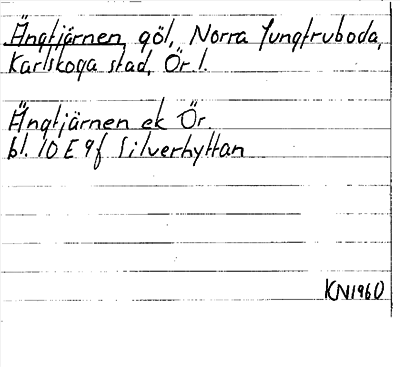 Ängtjärnen, göl, Norra Jungfruboda,
Karlskoga stad, Ör. l.
Ängtjärnen ek Ör.
bl. 10 E 9f Silverhyttan
KN1960